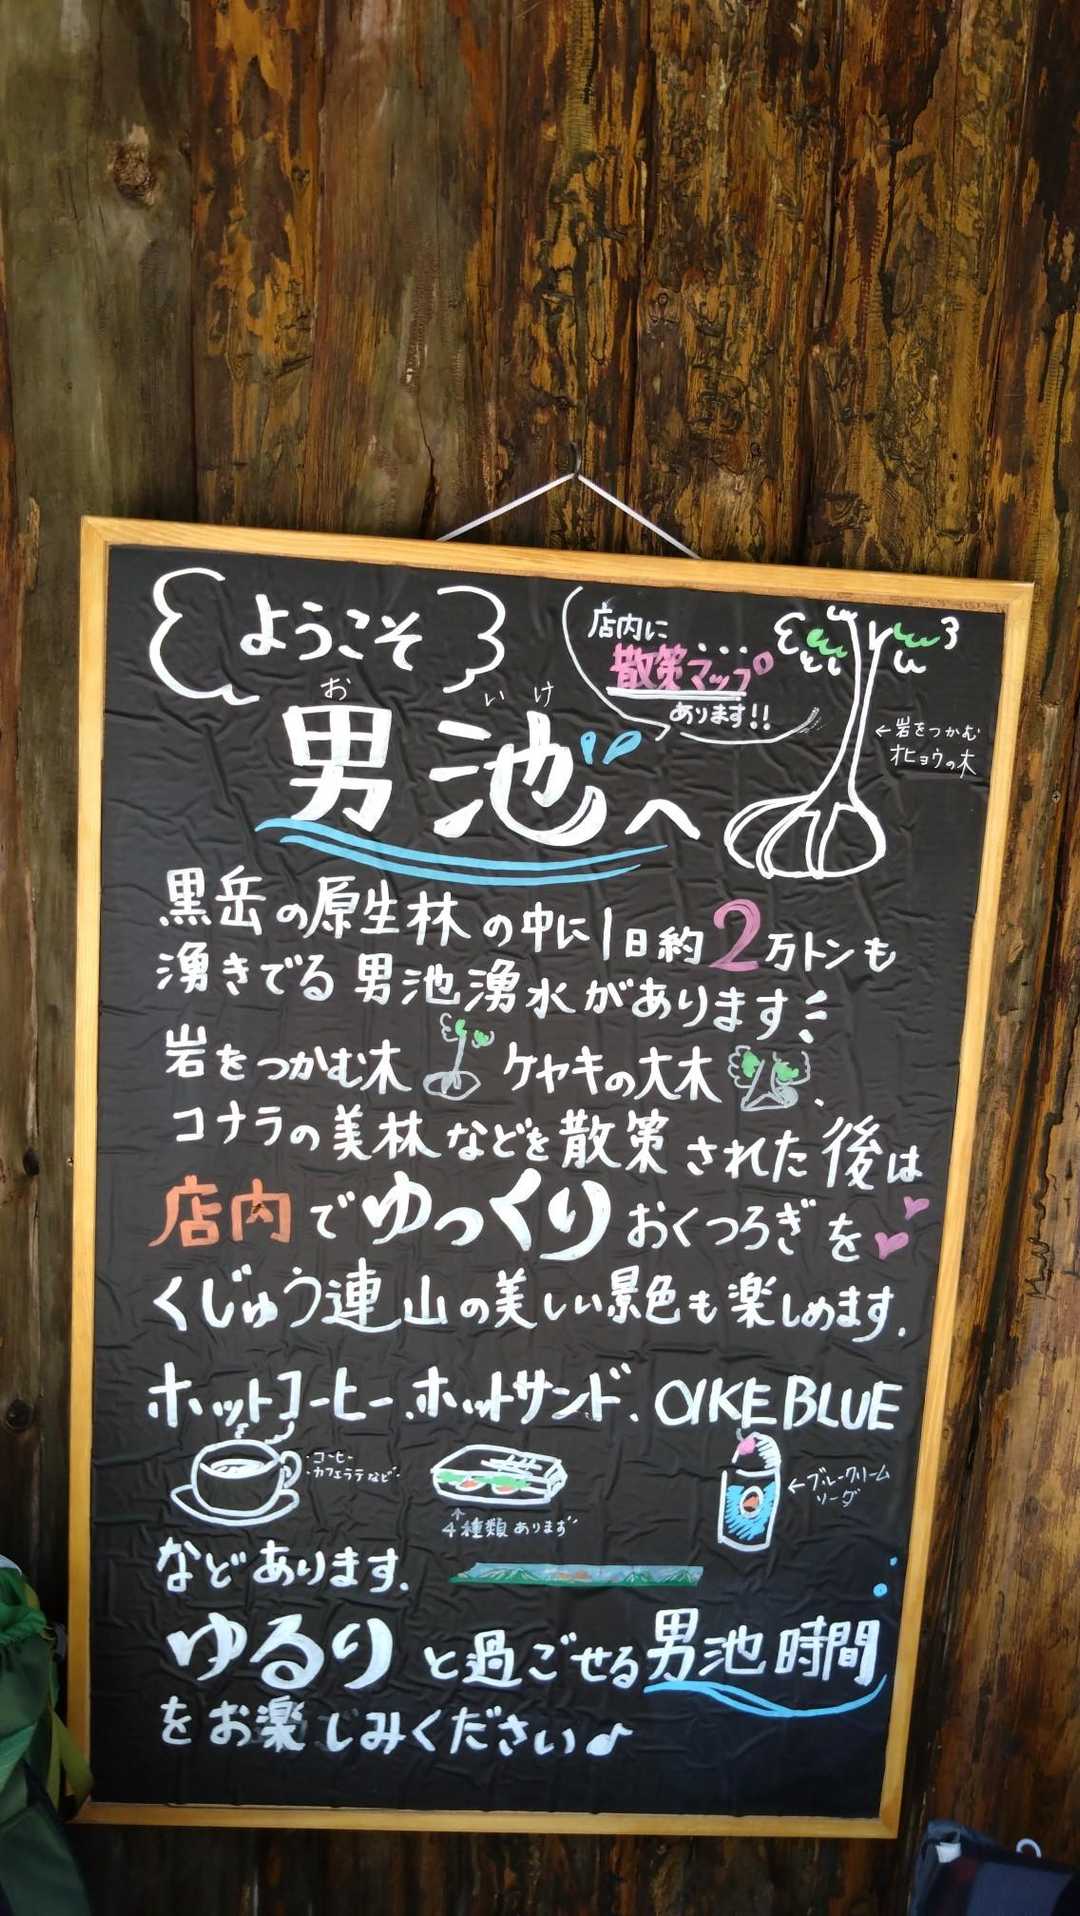 ようこそ
店内に
散策マップ
あります!!
お いけ
男池へ
←岩をつかむ
オヒョウの木
黒岳の原生林の中に1日約2万トンも
湧きでる男池湧水があります
岩をつかむ木 ケヤキの大木、
コナラの美林などを散策された後は
店内でゆっくりおくつろぎを
くじゅう連山の美しい景色も楽しめます.
ホットコーヒー.ホットサンド.OIKE BLUE
・コーヒー
・カフェラテなど
↑
4種類あります
←ブルークリーム
ソーダ
などあります.
ゆるりと過ごせる男池時間
をお楽しみください♪